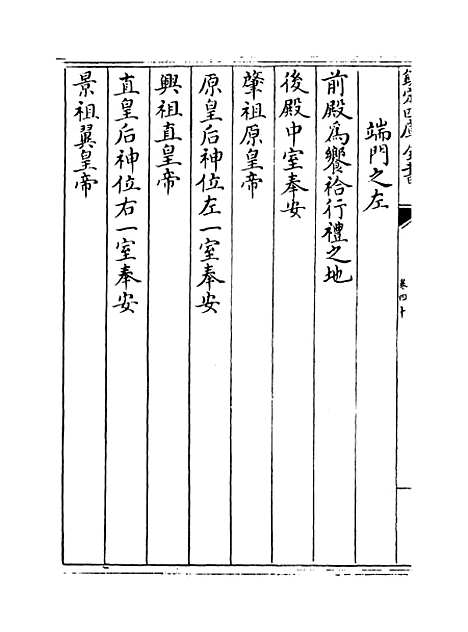 欽定四庫全書
卷四十
端門之左
前殿為饗祫行禮之地
後殿中室奉安
肇祖原皇帝
原皇后神位左一室奉安
興祖直皇帝
直皇后神位右一室奉安
景祖翼皇帝